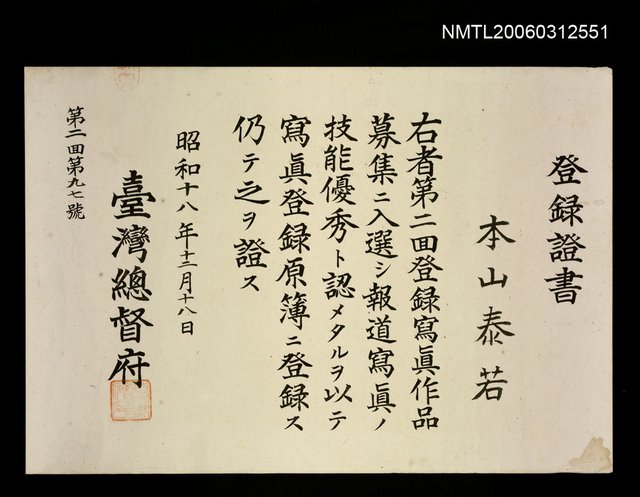 NMTL20060312551
登録證書
本山泰若
右者第二回登録寫眞作品
募集ニ入選シ報道寫眞ノ
技能優秀ト認メタルヲ以テ
寫眞登録原簿ニ登録ス
仍テ之ヲ證ス
昭和十八年十二月十八日
臺灣總督府
第二回第九七號